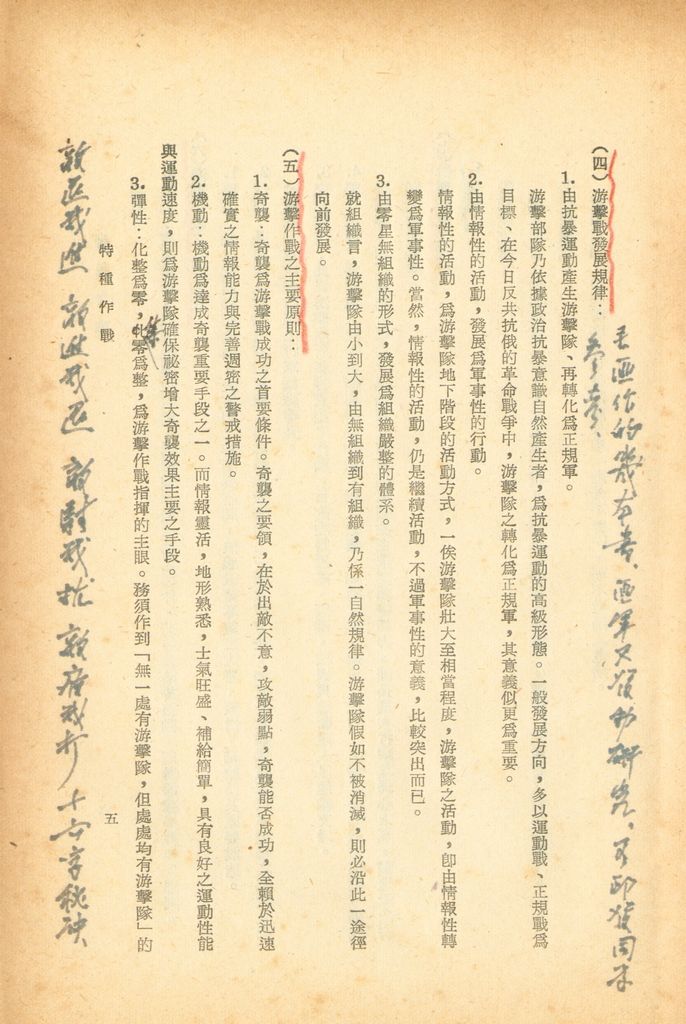 毛匪作的幾本書、匪軍又 研究，可印發同志
參考、
（四）游擊戰發展規律：
1.由抗暴運動產生游擊隊、再轉化爲正規軍。
游擊部隊乃依據政治抗暴意識自然產生者，爲抗暴運動的高級形態。一般發展方向，多以運動戰、正規戰爲
目標、在今日反共抗俄的革命戰爭中，游擊隊之轉化爲正規軍，其意義似更爲重要。
2.由情報性的活動，發展爲軍事性的行動。
情報性的活動，爲游擊隊地下階段的活動方式，一俟游擊隊壯大至相當程度，游擊隊之活動，卽由情報性轉
變爲軍事性。當然，情報性的活動，仍是繼續活動，不過軍事性的意義，比較突出而已。
3.由零星無組織的形式，發展爲組織嚴整的體系。
就組織言，游擊隊由小到大，由無組織到有組織，乃係一自然規律。游擊隊假如不被消滅，則必沿此一途徑
向前發展。
（五）游擊作戰之主要原則：
1.奇襲：奇襲爲游擊戰成功之首要條件。奇襲之要領，在於出敵不意，攻敵弱點，奇襲能否成功，全賴於迅速
確實之情報能力與完善週密之警戒措施。
2.機動：機動爲達成奇襲重要手段之一。而情報靈活，地形熟悉，士氣旺盛、補給簡單，具有良好之運動性能
與運動速度，則爲游擊隊確保祕密增大奇襲效果主要之手段。
集
3.彈性：化整爲零，化零爲整，爲游擊作戰指揮的主眼。務須作到「無一處有游擊隊，但處處均有游擊隊」的
特種作戰
五
敵退我進 敵進我退 敵駐我扰 敵疲我打 十六字秘訣